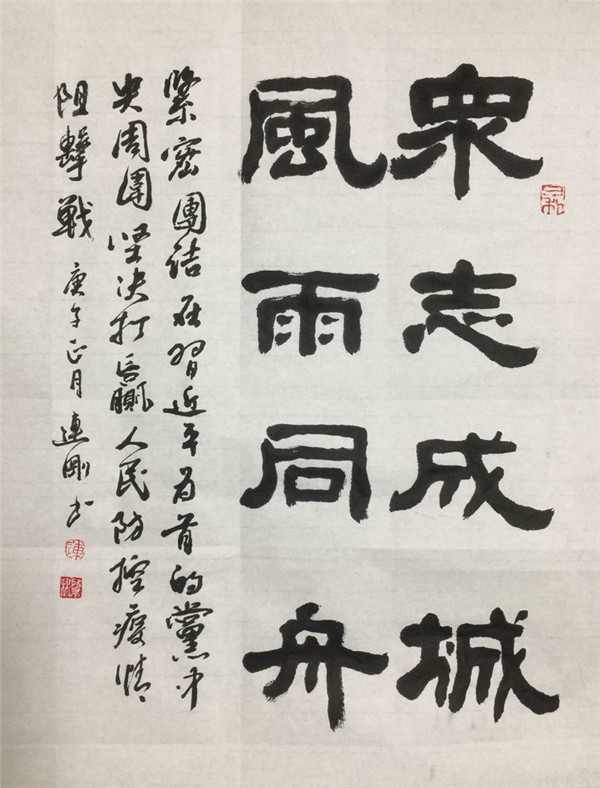 眾志成城
風雨同舟
緊密團結在習近平為首的黨中
央周圍坚决打贏人民防控疫情
阻擊戰 庚子正月連剛书